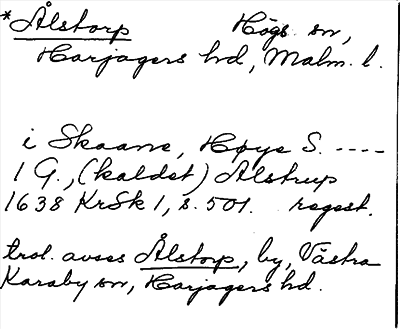 *Ålstorp Högs sn,
Harjagers hd, Malm. l.
i Skaane, Høys S. ----
1 G., (kaldet) Alstrup
1638 KrSk 1, s. 501. regest.
trol. avses Ålstorp, by, Västra
Karaby sn, Harjagers hd.